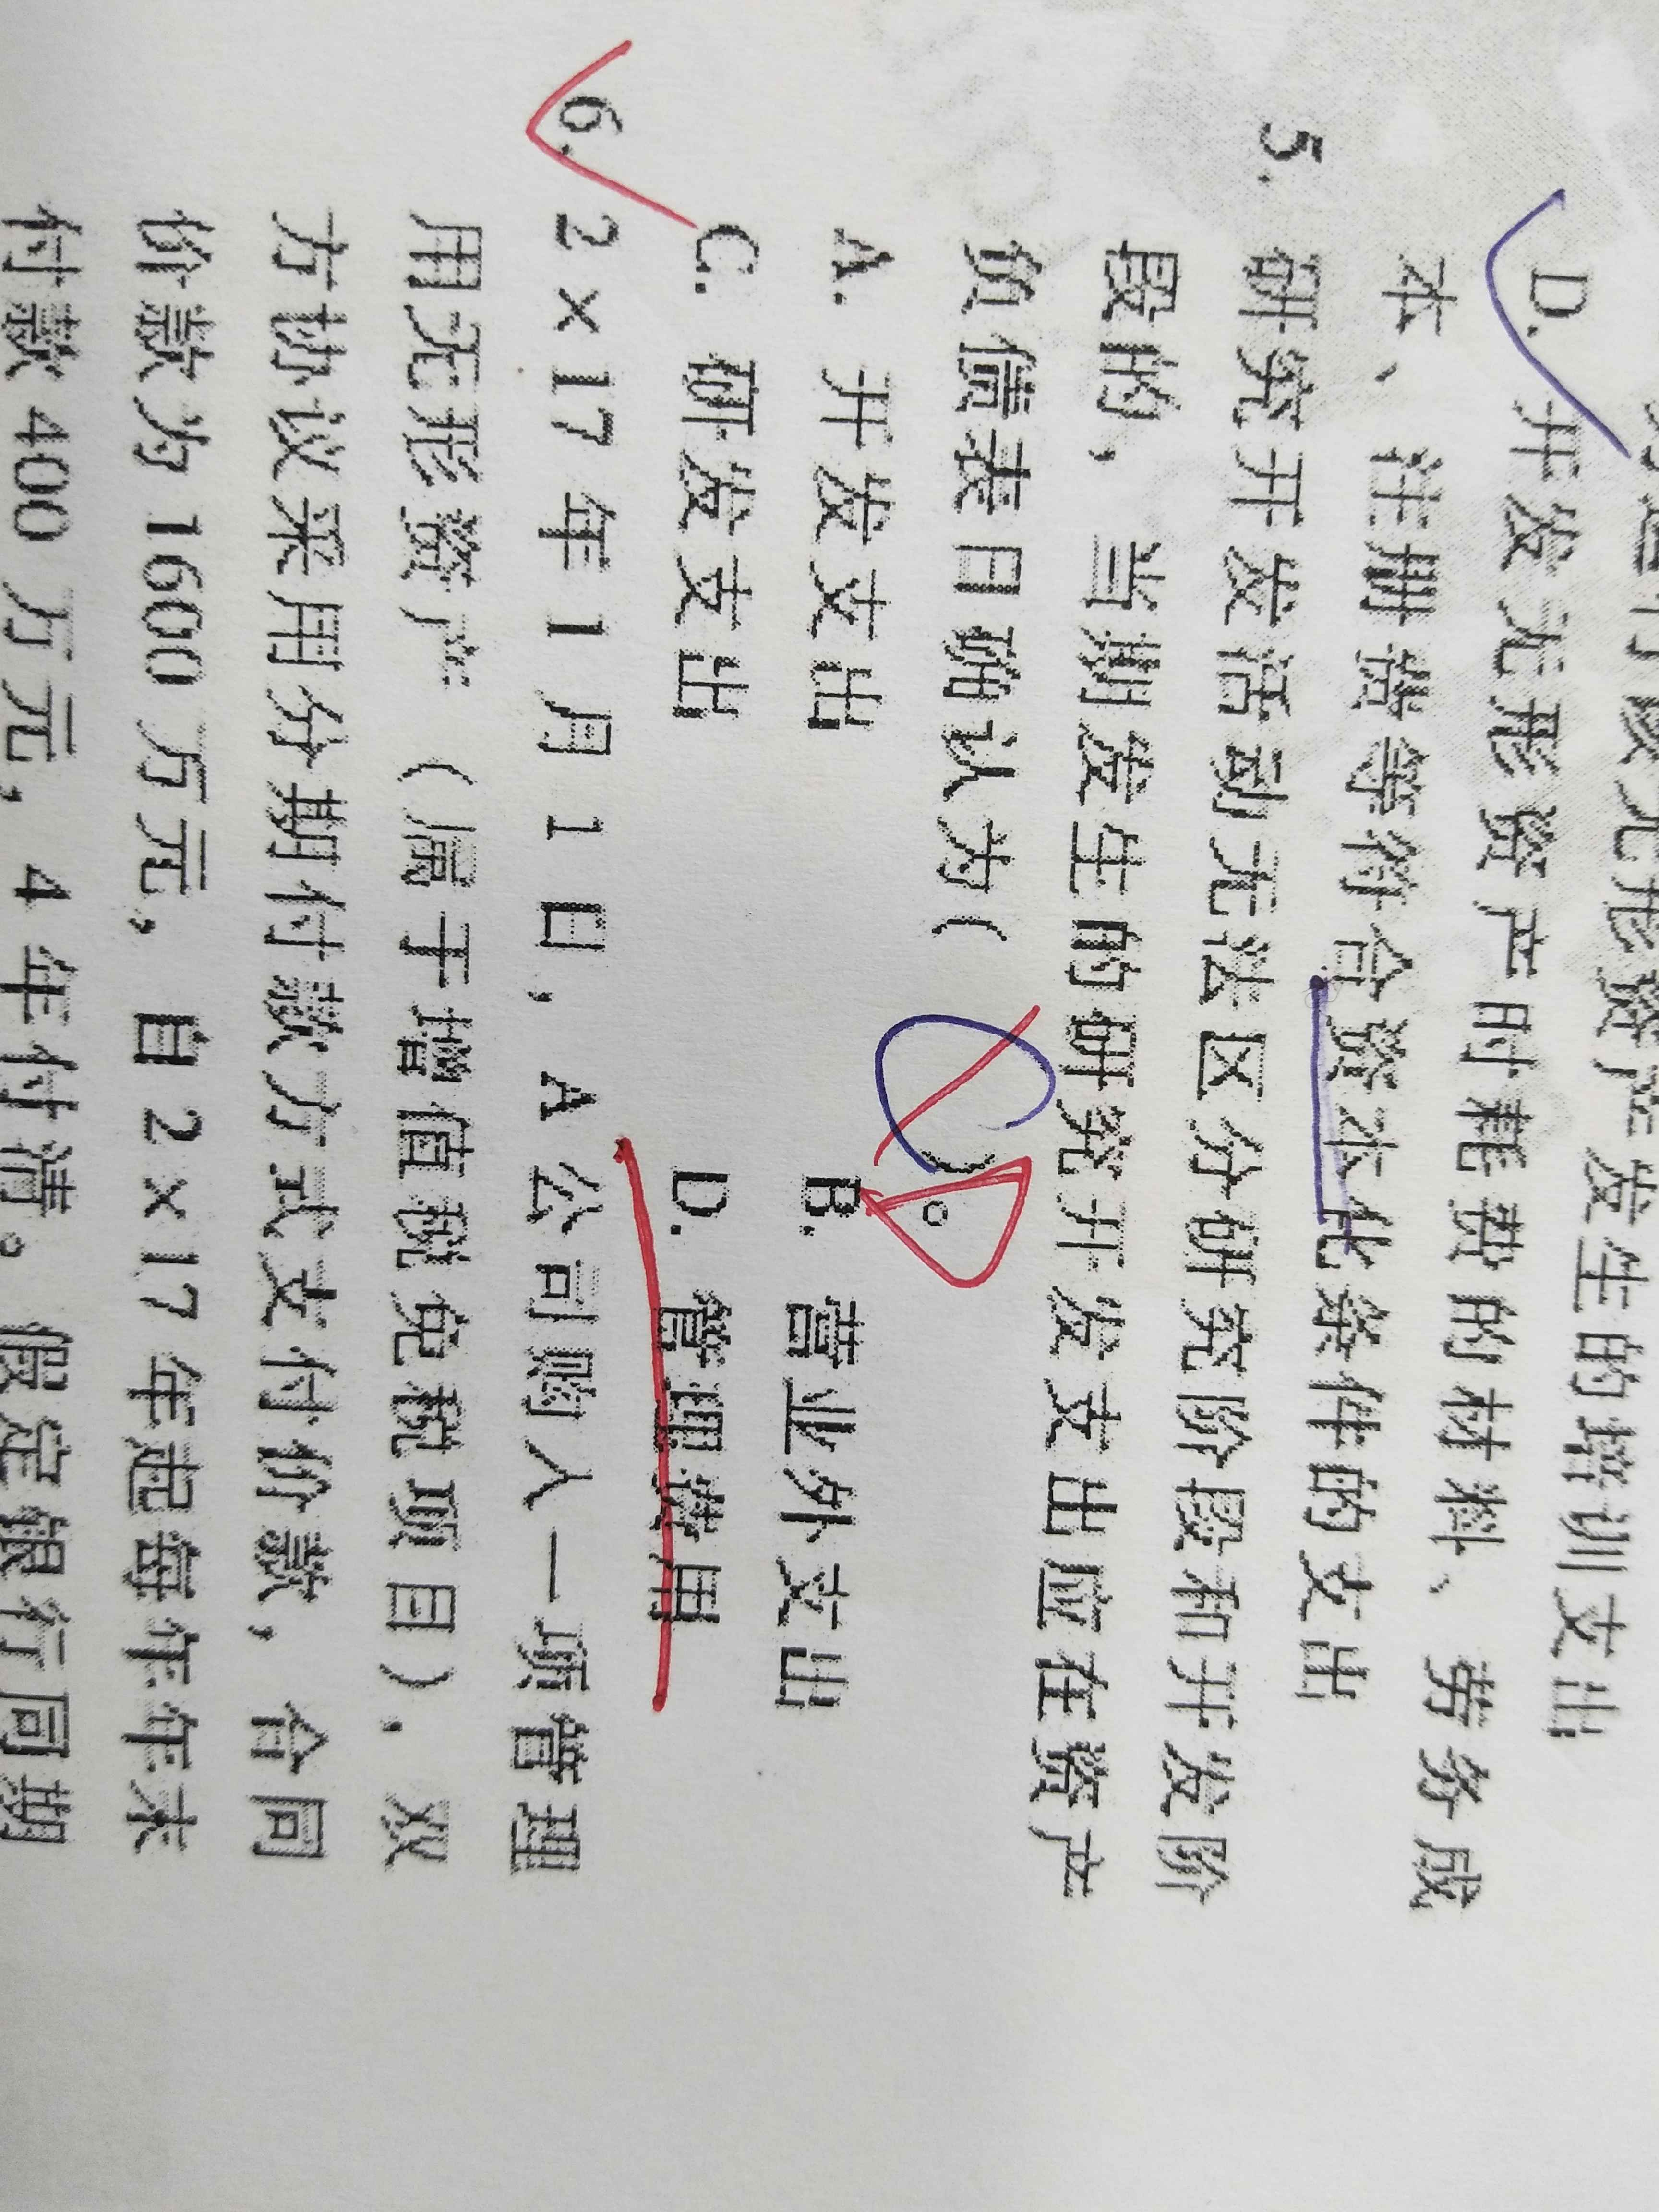 该无形资产发生的培训支出
D. 开发无形资产时耗费的材料、劳务成
本、注册费等符合资本化条件的支出
5. 研究开发活动无法区分研究阶段和开发阶
段的，当期发生的研究开发支出应在资产
负债表日确认为( )。
A. 开发支出 B. 营业外支出
C. 研发支出 D. 管理费用
6. 2×17年1月1日，A公司购入一项管理
用无形资产（属于增值税免税项目），双
方协议采用分期付款方式支付价款，合同
价款为1600万元，自2×17年起每年年末
付款400万元，4年付清。假定银行同期